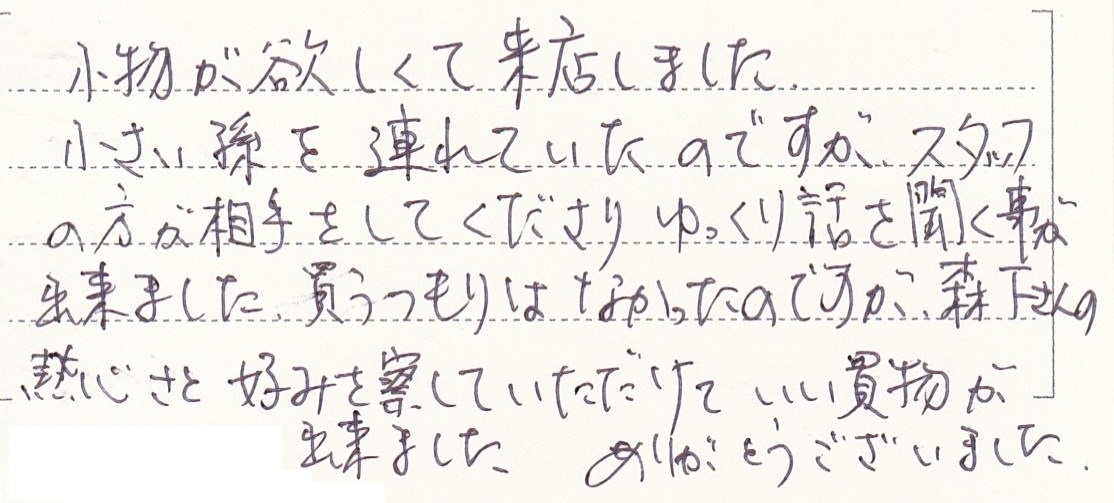 小物が欲しくて来店しました.
小さい孫を連れていたのですが、スタッフ
の方が相手をしてくださりゆっくり話を聞く事が
出来ました、買うつもりはなかったのですが、森下さんの
熱心さと好みを察していただけていい買物が
出来ました ありがとうございました.